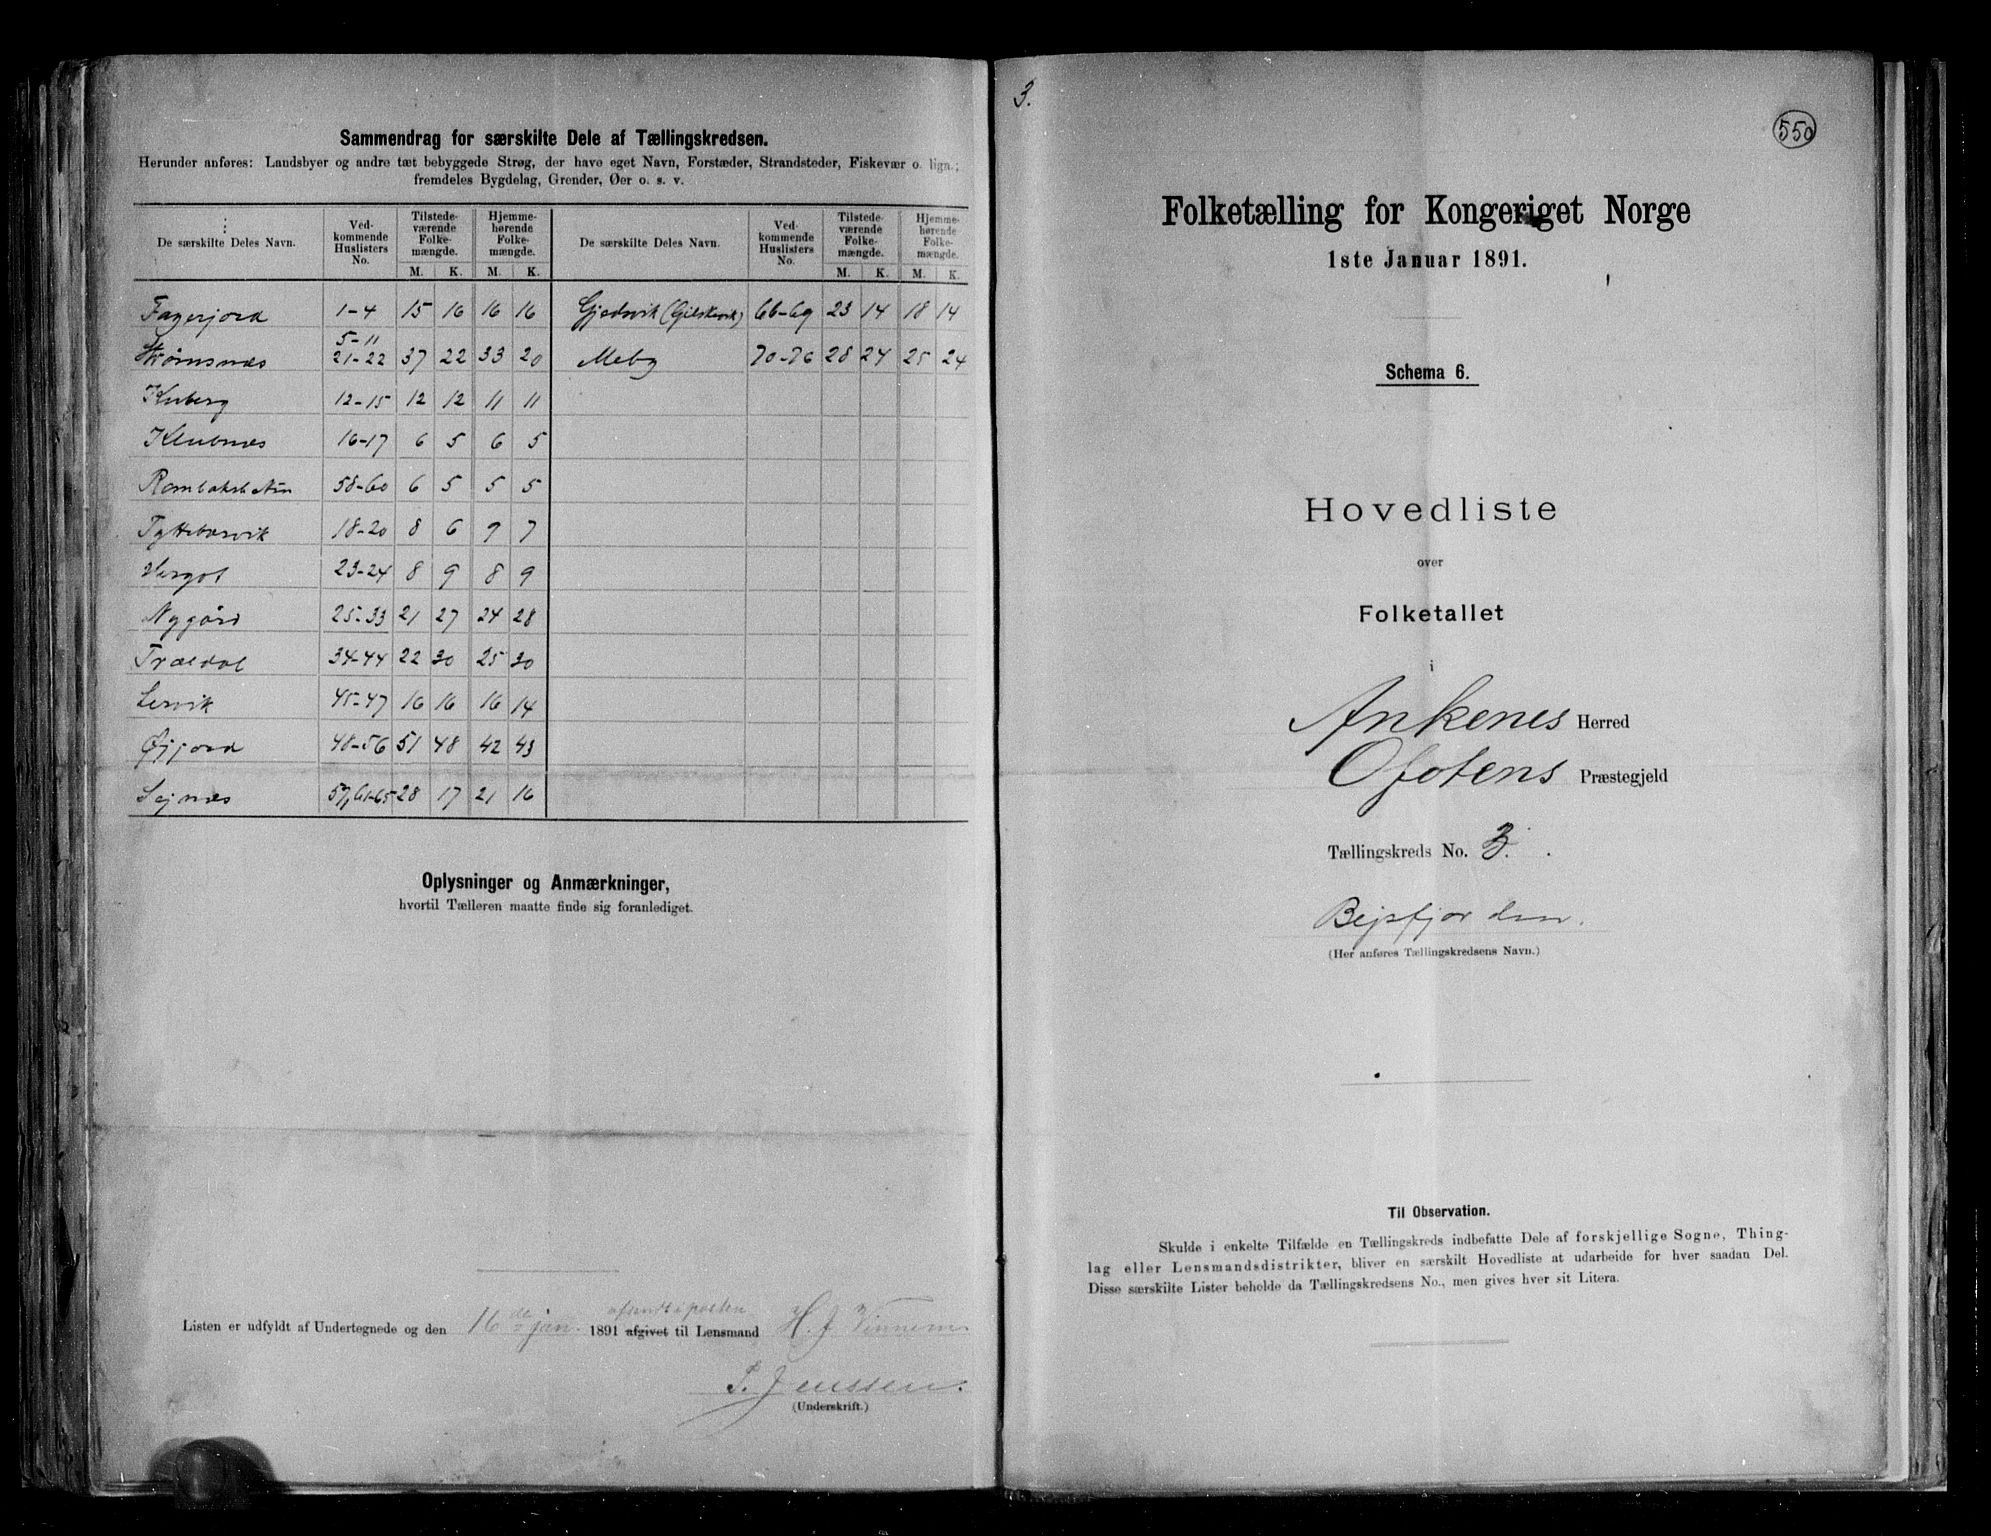 Sammendrag for særskilte Dele af Tællingskredsen.
Herunder anføres: Landsbyer og andre tæt bebyggede Strøg, der have eget Navn, Forstæder, Strandsteder, Fiskevær o. lign.;
fremdeles Bygdelag, Grender, Øer o. s. v.
De særskilte Deles Navn. Vedkommende Huslisters No. Tilstedeværende Folkemængde. M. K. Hjemmehørende Folkemængde. M. K. De særskilte Deles Navn. Vedkommende Huslisters No. Tilstedeværende Folkemængde. M. K. Hjemmehørende Folkemængde. M. K.
Fagerjord 1-4 15 16 16 16 Gjedsvik (Gilskevik) 66-69 23 14 18 14
5-11
Strømsnæs 21-22 37 22 33 20 Meby 70-76 28 24 25 24
Kuberg 12-15 12 12 11 11
Klubnæs 16-17 6 5 6 5
Rombaksbotn 58-60 6 5 5 5
Tyttebærvik 18-20 8 6 9 7
Hergot 23-24 8 9 8 9
Nygård 25-33 21 27 24 28
Trældal 34-44 22 30 25 30
Lervik 45-47 16 16 16 14
Øyjord 48-56 51 48 42 43
Sejnæs 57,61-65 28 17 21 16
Oplysninger og Anmærkninger,
hvortil Tælleren maatte finde sig foranlediget.
afsendt i posten
Listen er udfyldt af Undertegnede og den 16de jan. 1891 afgivet til Lensmand H. J. Vinnem
P. Jenssen.
(Underskrift.)
3.
550
Folketælling for Kongeriget Norge
1ste Januar 1891.
Schema 6.
Hovedliste
over
Folketallet
i
Ankenes Herred
Ofotens Præstegjeld
Tællingskreds No. 3.
Bejsfjorden.
(Her anføres Tællingskredsens Navn.)
Til Observation.
Skulde i enkelte Tilfælde en Tællingskreds indbefatte Dele af forskjellige Sogne, Thing-
lag eller Lensmandsdistrikter, bliver en særskilt Hovedliste at udarbeide for hver saadan Del.
Disse særskilte Lister beholde da Tællingskredsens No., men gives hver sit Litera.